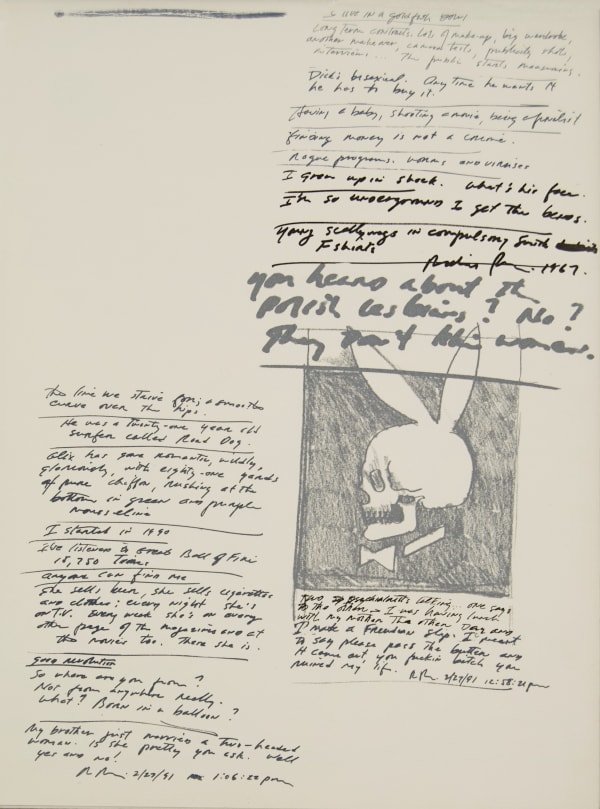 I live in a goldfish bowl
Long term contracts. Lots of make-up, big wardrobe,
another makeover, camera tests, publicity shots,
interviews... The public starts measuring.
Dick's bisexual. Any time he wants it
he has to buy it.
Having a baby, shooting a movie, being a finalist
finding money is not a crime.
Rogue programs. Worms and viruses
I grew up in shock. What's his face.
I'm so underground I get the bends.
Young scallywags in compulsory Smith
T shirts
1967.
You heard about the
Polish lesbians? No?
They don't like women.
The line we strive for; a smooth
curve over the hips.
He was a twenty-one year old
surfer called Road Dog.
Alix has gone romantic, wildly,
gloriously, with eighty-one yards
of pure chiffon, rushing at the
bottom in green and purple
mousseline
I started in 1990
I've listened to Great Balls of Fire
18,750 times
anyone can find me
She sells beer, she sells cigarettes
and clothes; every night she's
on T.V. Every week she's on every
other page of the magazines and at
the movies too. There she is.
good revolution
So where are you from?
Not from anywhere really.
What? Born in a balloon?
My brother just married a two-headed
woman. Is she pretty you ask. Well
yes and no!
2/27/91 1:06:22 pm
Two psychiatrists talking... one says
to the other — I was having lunch
with my mother the other day and
I made a Freudian slip. I meant
to say please pass the butter and
it came out you fuckin bitch you
ruined my life. 2/27/91 12:58:21 pm